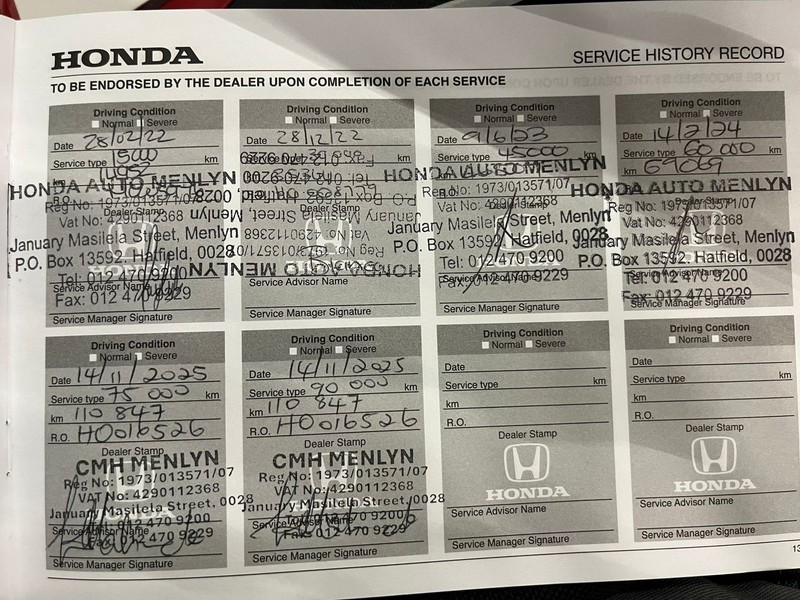 HONDA
SERVICE HISTORY RECORD
TO BE ENDORSED BY THE DEALER UPON COMPLETION OF EACH SERVICE
Driving Condition
Normal Severe
Date 28/02/22
Service type 1500 km
HONDA AUTO MENLYN
Reg No: 1973/013571/07
Dealer Stamp
Vat No: 4290112368
January Masilela Street, Menlyn
P.O. Box 13592, Hatfield, 0028
Tel: 012 470 9200
Service Advisor Name
Fax: 012 470 9229
Service Manager Signature
Driving Condition
Normal Severe
Date 28/12/22
Service type km
Fax: 012 470 9229
Tel: 012 470 9200
P.O. Box 13592, Hatfield, 0028
January Masilela Street, Menlyn
Vat No: 4290112368
Reg No: 1973/013571/07
HONDA AUTO MENLYN
Service Advisor Name
Service Manager Signature
Driving Condition
Normal Severe
Date 9/6/23
Service type 45000 km
HONDA AUTO MENLYN
Reg No: 1973/013571/07
Vat No: 4290112368
January Masilela Street, Menlyn
P.O. Box 13592, Hatfield, 0028
Tel: 012 470 9200
Service Advisor Name
Fax: 012 470 9229
Service Manager Signature
Driving Condition
Normal Severe
Date 14/2/24
Service type 60 000 km
km 69069
HONDA AUTO MENLYN
Reg No: 1973/013571/07
Vat No: 4290112368
January Masilela Street, Menlyn
P.O. Box 13592, Hatfield, 0028
Tel: 012 470 9200
Fax: 012 470 9229
Service Manager Signature
Driving Condition
Normal Severe
Date 14/11/2025
Service type 75 000 km
km 110 847
R.O. HO016526
Dealer Stamp
CMH MENLYN
Reg No: 1973/013571/07
VAT No: 4290112368
January Masilela Street, 0028
012 470 9200
Service Advisor Name
Fax: 012 470 9229
Service Manager Signature
Driving Condition
Normal Severe
Date 14/11/2025
Service type 90 000 km
km 110 847
R.O. HO016526
Dealer Stamp
CMH MENLYN
Reg No: 1973/013571/07
VAT No: 4290112368
January Masilela Street, 0028
012 470 9200
Service Advisor Name
Fax 012 470 9229
Service Manager Signature
Driving Condition
Normal Severe
Date
Service type km
km
R.O.
Dealer Stamp
HONDA
Service Advisor Name
Service Manager Signature
Driving Condition
Normal Severe
Date
Service type km
km
R.O.
Dealer Stamp
HONDA
Service Advisor Name
Service Manager Signature
13